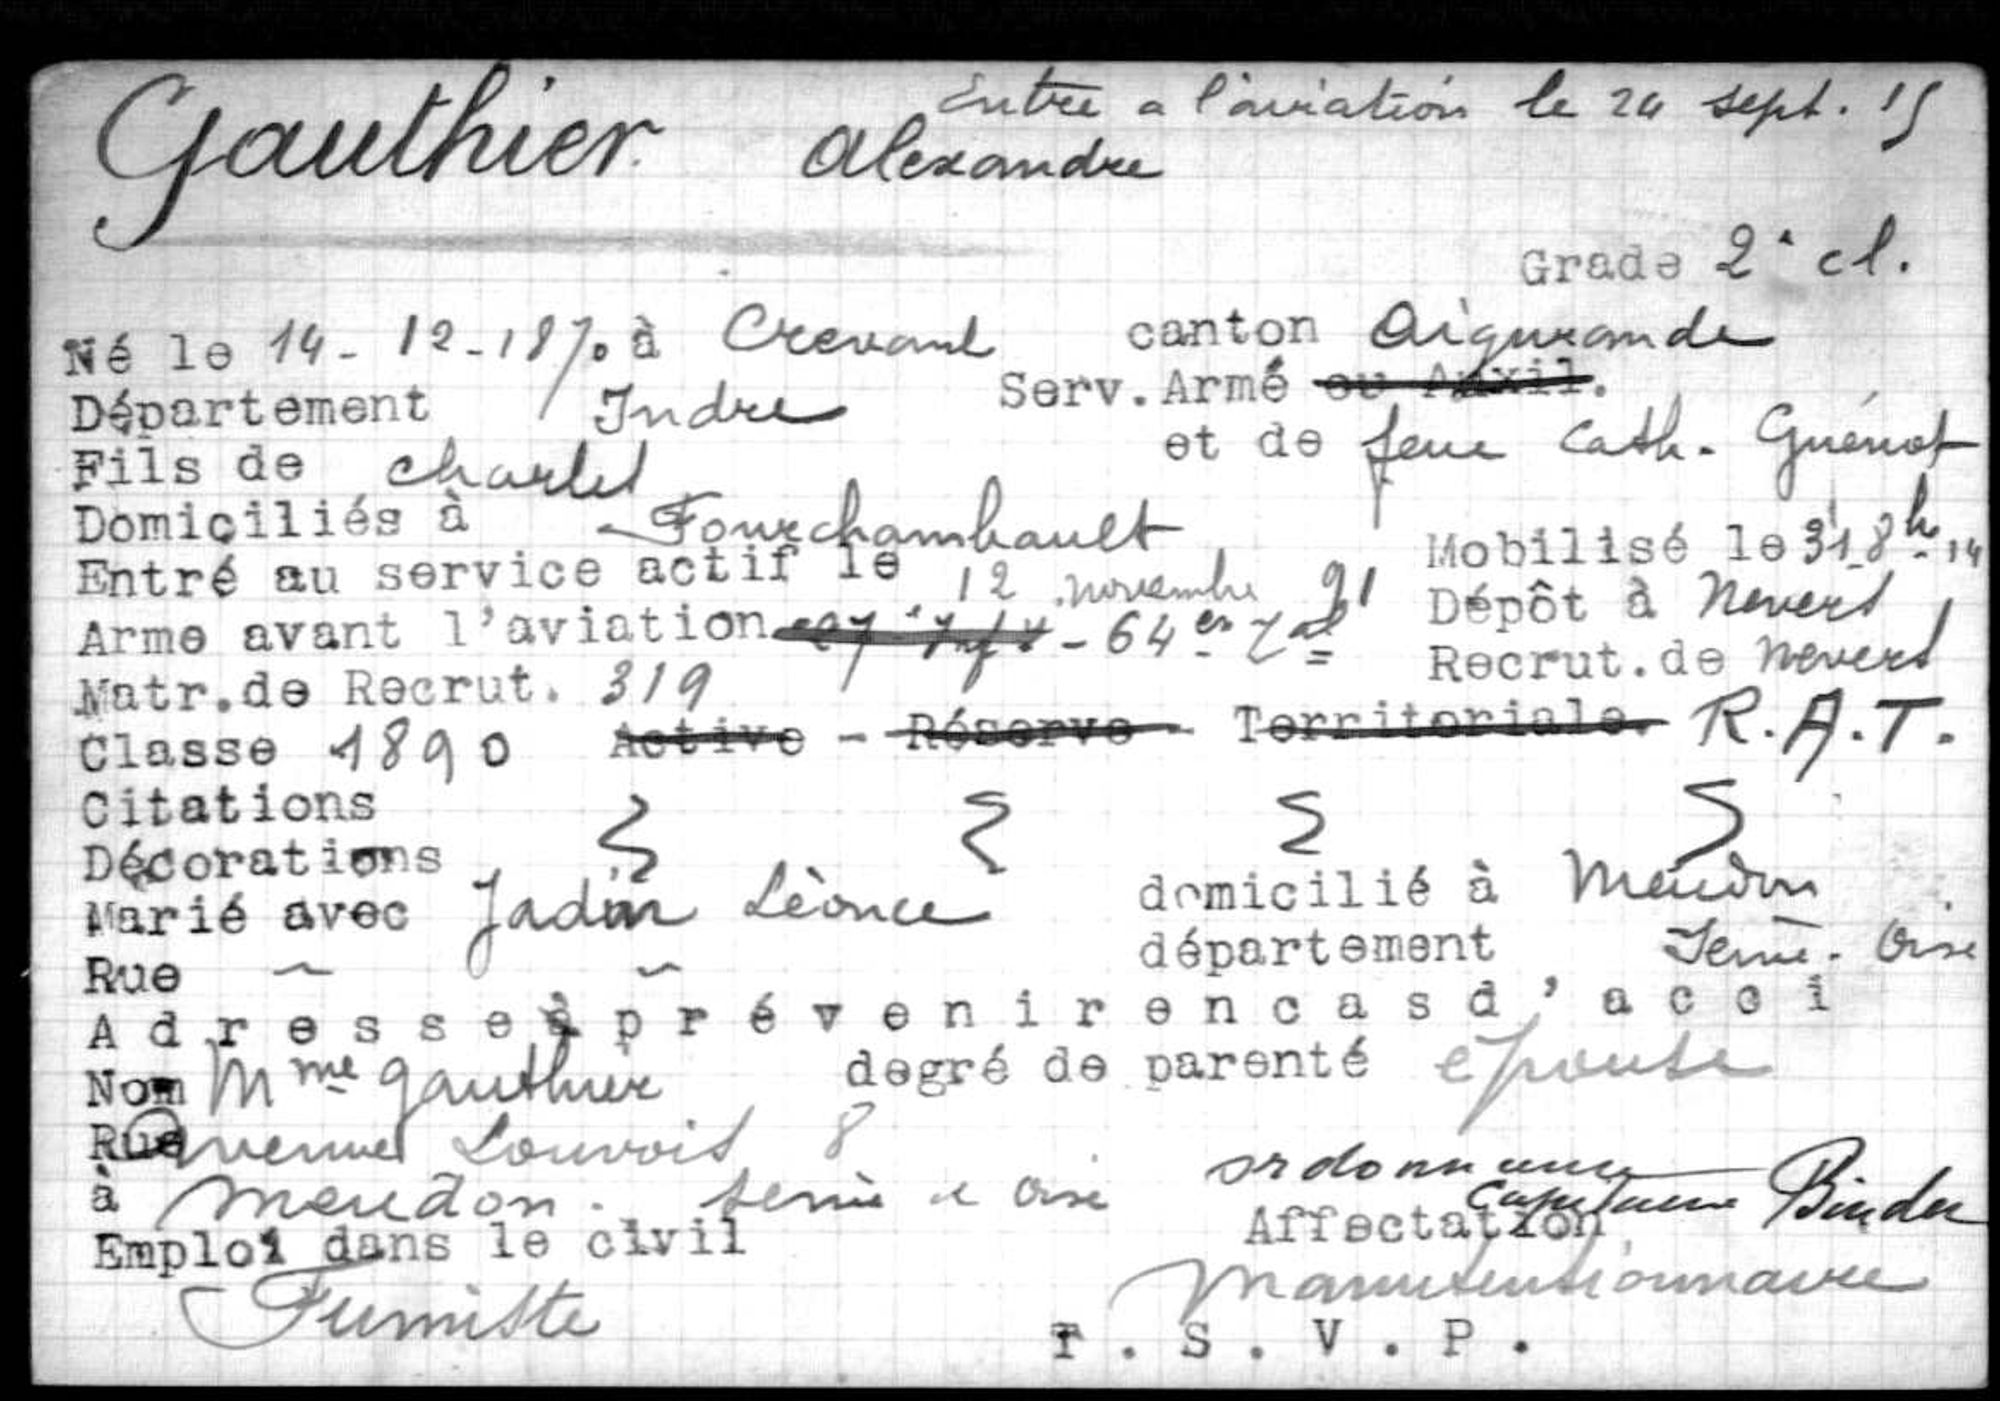 Entré a l'aviation le 24 sept. 15
Gauthier Alexandre
Grade 2e cl.
Né le 14-12-1870 à Crevant canton Aigurande
Département Indre Serv. Armé ou Auxil.
Fils de Charles et de feue Cath. Guénot
Domiciliés à Fourchambault Mobilisé le 31-8bre-14
Entré au service actif le 12 novembre 91 Dépôt à Nevers
Arme avant l'aviation - 64e Ial Recrut. de Nevers
Matr. de Recrut. 319
Classe 1890 Active - Réserve - Territoriale. R.A.T.
Citations
Décorations
Marié avec Jadin Lèonce domicilié à Meudon
Rue département Seine. Oise
Adresse à prévenir en cas d'acci
Nom Mme Gauthier degré de parenté épouse
Rue avenue Louvois 8
à Meudon. Seine et Oise ordonnance Capitaine Binder
Emploi dans le civil Affectation
Fumiste Manutentionnaire
T.S.V.P.